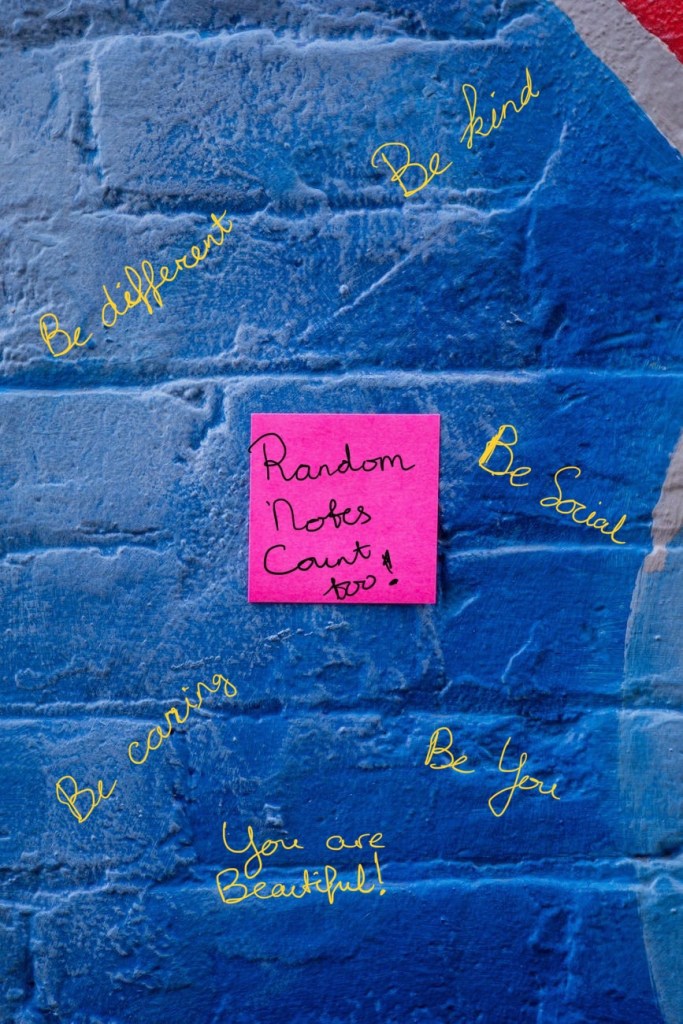 Be kind
Be different
Random
Notes
Count
too!
Be Social
Be caring
Be You
You are
Beautiful!